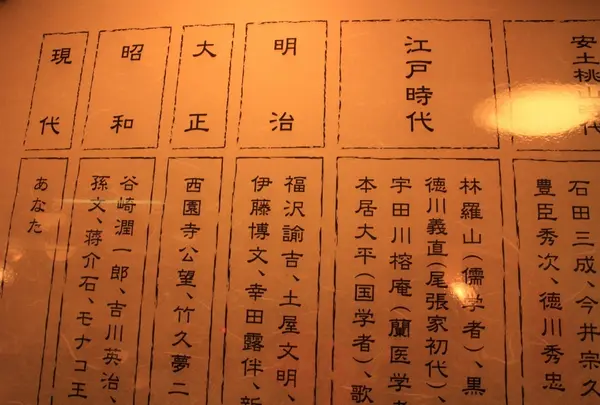 安土桃山時代
石田三成、今井宗久
豊臣秀次、徳川秀忠
江戸時代
林羅山（儒学者）、黒
徳川義直（尾張家初代）、
宇田川榕庵（蘭医学者
本居大平（国学者）、歌
明治
福沢諭吉、土屋文明、
伊藤博文、幸田露伴、新
大正
西園寺公望、竹久夢二
昭和
谷崎潤一郎、吉川英治、
孫文、蒋介石、モナコ王
現代
あなた